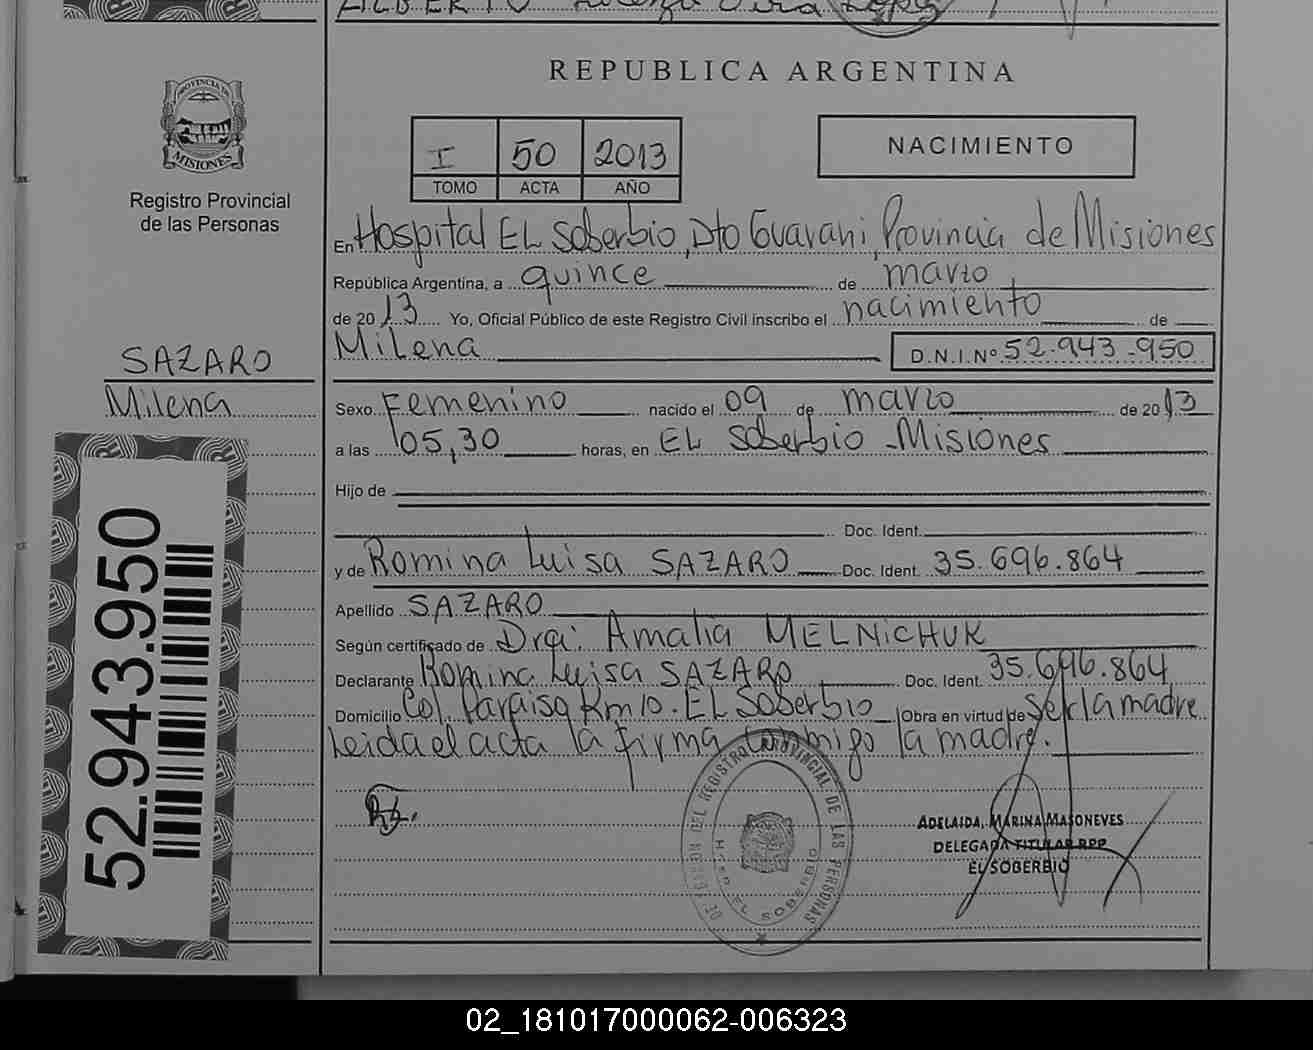 REPUBLICA ARGENTINA
PROVINCIA DE
MISIONES
Registro Provincial
de las Personas
I 50 2013
TOMO ACTA AÑO
NACIMIENTO
En Hospital EL Soberbio, Dto Guarani, Provincia de Misiones
República Argentina, a quince de marzo
de 2013 Yo, Oficial Público de este Registro Civil inscribo el nacimiento de
Milena D.N.I.Nº 52.943.950
SAZARO
Milena
Sexo Femenino nacido el 09 de marzo de 2013
a las 05,30 horas, en EL Soberbio - Misiones
Hijo de
Doc. Ident.
y de Romina Luisa SAZARO Doc. Ident. 35.696.864
Apellido SAZARO
Según certificado de Dra: Amalia MELNICHUK
Declarante Romina Luisa SAZARO Doc. Ident. 35.696.864
Domicilio Col. Paraiso Km 10. EL Soberbio Obra en virtud de ser la madre
Leida el acta la firma conmigo la madre.
52.943.950
R.S.
DEL REGISTRO PROVINCIAL DE LAS PERSONAS
HOSP. EL SOBERBIO
ADELAIDA, MARINA MASONEVES
DELEGADA TITULAR RPP
EL SOBERBIO
02_181017000062-006323